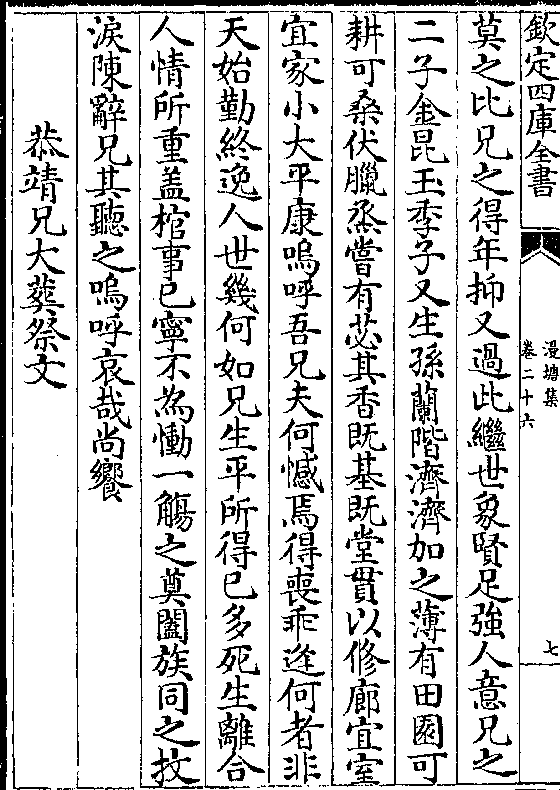 欽定四庫全書
漫塘集
卷二十六
七
莫之比兄之得年抑又過此繼世象賢足強人意兄之
二子金昆玉季子又生孫蘭階濟濟加之薄有田園可
耕可桑伏臘烝嘗有苾其香既基既堂貫以修廊宜室
宜家小大平康嗚呼吾兄夫何憾焉得喪乖逢何者非
天始勤終逸人世幾何如兄生平所得已多死生離合
人情所重盖棺事已寧不為慟一觴之奠闔族同之抆
淚陳辭兄其聽之嗚呼哀哉尚饗
恭靖兄大葬祭文